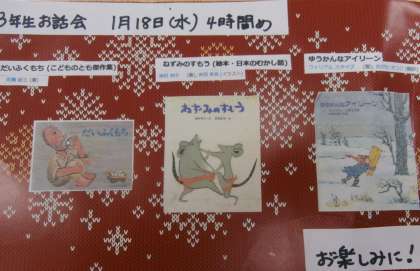 3年生お話会 1月18日(水) 4時間め
だいふくもち (こどものとも傑作集)
ねずみのすもう (絵本・日本のむかし話)
ゆうかんなアイリーン
だいふくもち
ねずみのすもう
ゆうかんなアイリーン
お楽しみに!